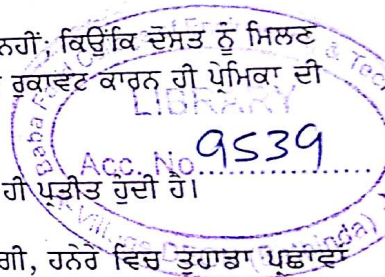 ਨਹੀਂ; ਕਿਉਂਕਿ ਦੋਸਤ ਨੂੰ ਮਿਲਣ
ਰੁਕਾਵਟ ਕਾਰਨ ਹੀ ਪ੍ਰੇਮਿਕਾ ਦੀ
LIBRARY
Acc. No. 9539
ਹੀ ਪ੍ਰਤੀਤ ਹੁੰਦੀ ਹੈ।
ਗੀ, ਹਨੇਰੇ ਵਿਚ ਤੁਹਾਡਾ ਪਰਛਾਵਾਂ